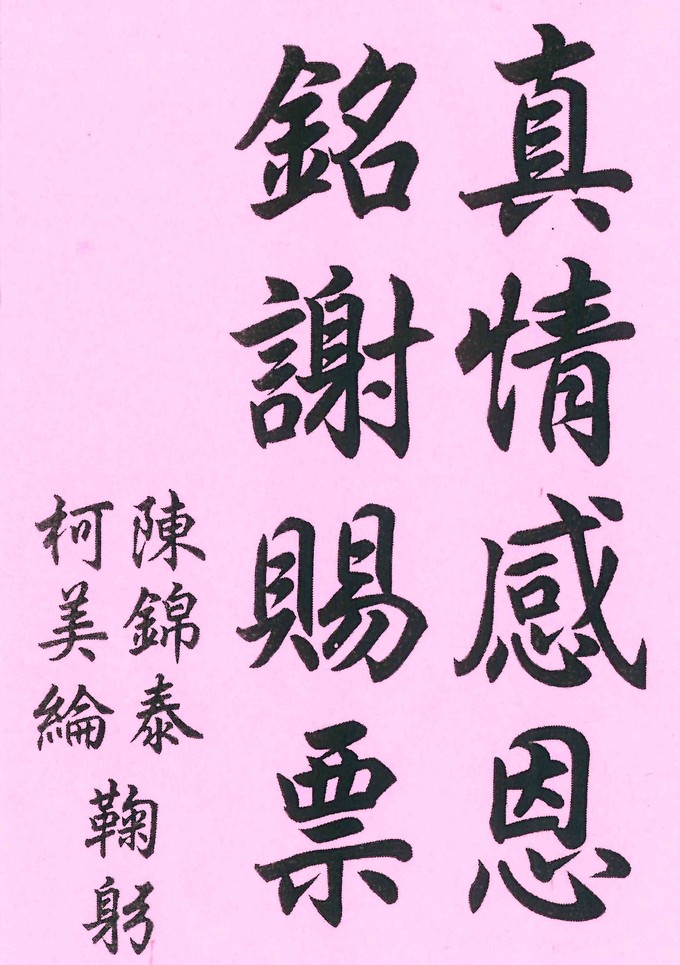 真情感恩
銘謝賜票
陳錦泰
柯美綸
鞠躬